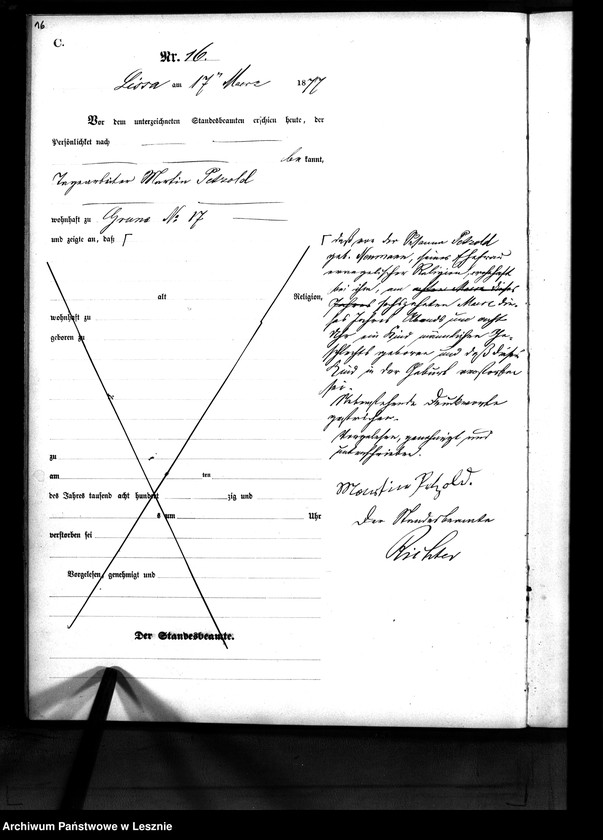 16
C.
Nr. 16.
Lissa am 17ⁿ Maerz 1877
Vor dem unterzeichneten Standesbeamten erschien heute, der
Persönlichkeit nach
be kannt,
Martin Petzold
wohnhaft zu Grune No 17
und zeigte an, daß ⌈
alt Religion,
wohnhaft zu
geboren zu
zu
am ten
des Jahres tausend acht hundert zig und
um Uhr
verstorben sei
Vorgelesen, genehmigt und
Der Standesbeamte.
⌈ daß von der Susanna Petzold
geb. Neumann, seiner Ehefrau
evangelischer Religion, wohnhaft
bei ihm, am achten Maerz dieses
Jahres sechszehnten Maerz die-
ses Jahres Abends um acht
Uhr ein Kind männlichen Ge-
schlechts geboren und daß dieses
Kind in der Geburt verstorben
sei.
Nebenstehende Druckworte
gestrichen.
Vorgelesen, genehmigt und
unterschrieben.
Martin Petzold.
Der Standesbeamte
Richter
Archiwum Państwowe w Lesznie